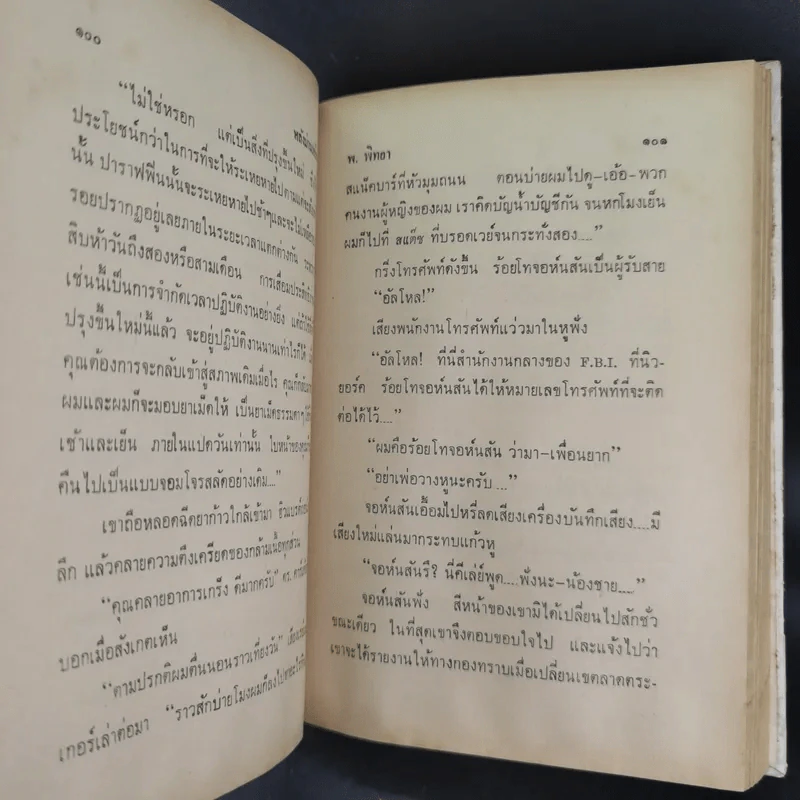 ๑๐๐
“ไม่ใช่หรอก แต่เป็นสิ่งที่ปรุงขึ้นใหม่
ประโยชน์กว่าในการที่จะให้ระเหยหายไปตาม
นั้น ปาราฟฟีนนั้นจะระเหยหายไปช้าๆและจะไม่
รอยปรากฏอยู่เลยภายในระยะเวลาแตกต่างกัน
สิบห้าวันถึงสองหรือสามเดือน การเสื่อม
เช่นนี้เป็นการจำกัดเวลาปฏิบัติงานอย่างยิ่ง
ปรุงขึ้นใหม่นี้แล้ว จะอยู่ปฏิบัติงานนานเท่าไรก็ได้
คุณต้องการจะกลับเข้าสู่สภาพเดิมเมื่อไร
ผมและผมก็จะมอบยาเม็ดให้ เป็นยาเม็ดธรรมดาๆ
เช้าและเย็น ภายในแปดวันเท่านั้น ใบหน้าของคุณ
คืนไปเป็นแบบจอมโจรสลัดอย่างเดิม...”
เขาถือหลอดฉีดยาก้าวใกล้เข้ามา
ลึก แล้วคลายความตึงเครียดของกล้ามเนื้อทุกส่วน
“คุณคลายอาการเกร็ง ดีมากครับ” ดร.
บอกเมื่อสังเกตเห็น
“ตามปรกติผมตื่นนอนราวเที่ยงวัน”
เกอร์เล่าต่อมา “ราวสักบ่ายโมงผมก็ลงไป
พ. พิทยา
๑๐๑
สแน๊คบาร์ที่หัวมุมถนน ตอนบ่ายผมไปดู-เอ้อ-พวก
คนงานผู้หญิงของผม เราคิดบัญน้ำบัญชีกัน จนหกโมงเย็น
ผมก็ไปที่ สแต๊ช ที่บรอดเวย์จนกระทั่งสอง....”
กริ่งโทรศัพท์ดังขึ้น ร้อยโทจอห์นสันเป็นผู้รับสาย
“อัลโหล!”
เสียงพนักงานโทรศัพท์แว่วมาในหูฟัง
“อัลโหล! ที่นี่สำนักงานกลางของ F.B.I. ที่นิว-
ยอร์ค ร้อยโทจอห์นสันได้ให้หมายเลขโทรศัพท์ที่จะติด
ต่อได้ไว้....”
“ผมคือร้อยโทจอห์นสัน ว่ามา-เพื่อนยาก”
“อย่าเพ่อวางหูนะครับ ...”
จอห์นสันเอื้อมไปหรี่ลดเสียงเครื่องบันทึกเสียง....มี
เสียงใหม่แล่นมากระทบแก้วหู
“จอห์นสันรึ? นี่คีเล่ย์พูด....ฟังนะ-น้องชาย....”
จอห์นสันฟัง สีหน้าของเขามิได้เปลี่ยนไปสักชั่ว
ขณะเดียว ในที่สุดเขาจึงตอบขอบใจไป และแจ้งไปว่า
เขาจะได้รายงานให้ทางกองทราบเมื่อเปลี่ยนเขตลาดตระ-